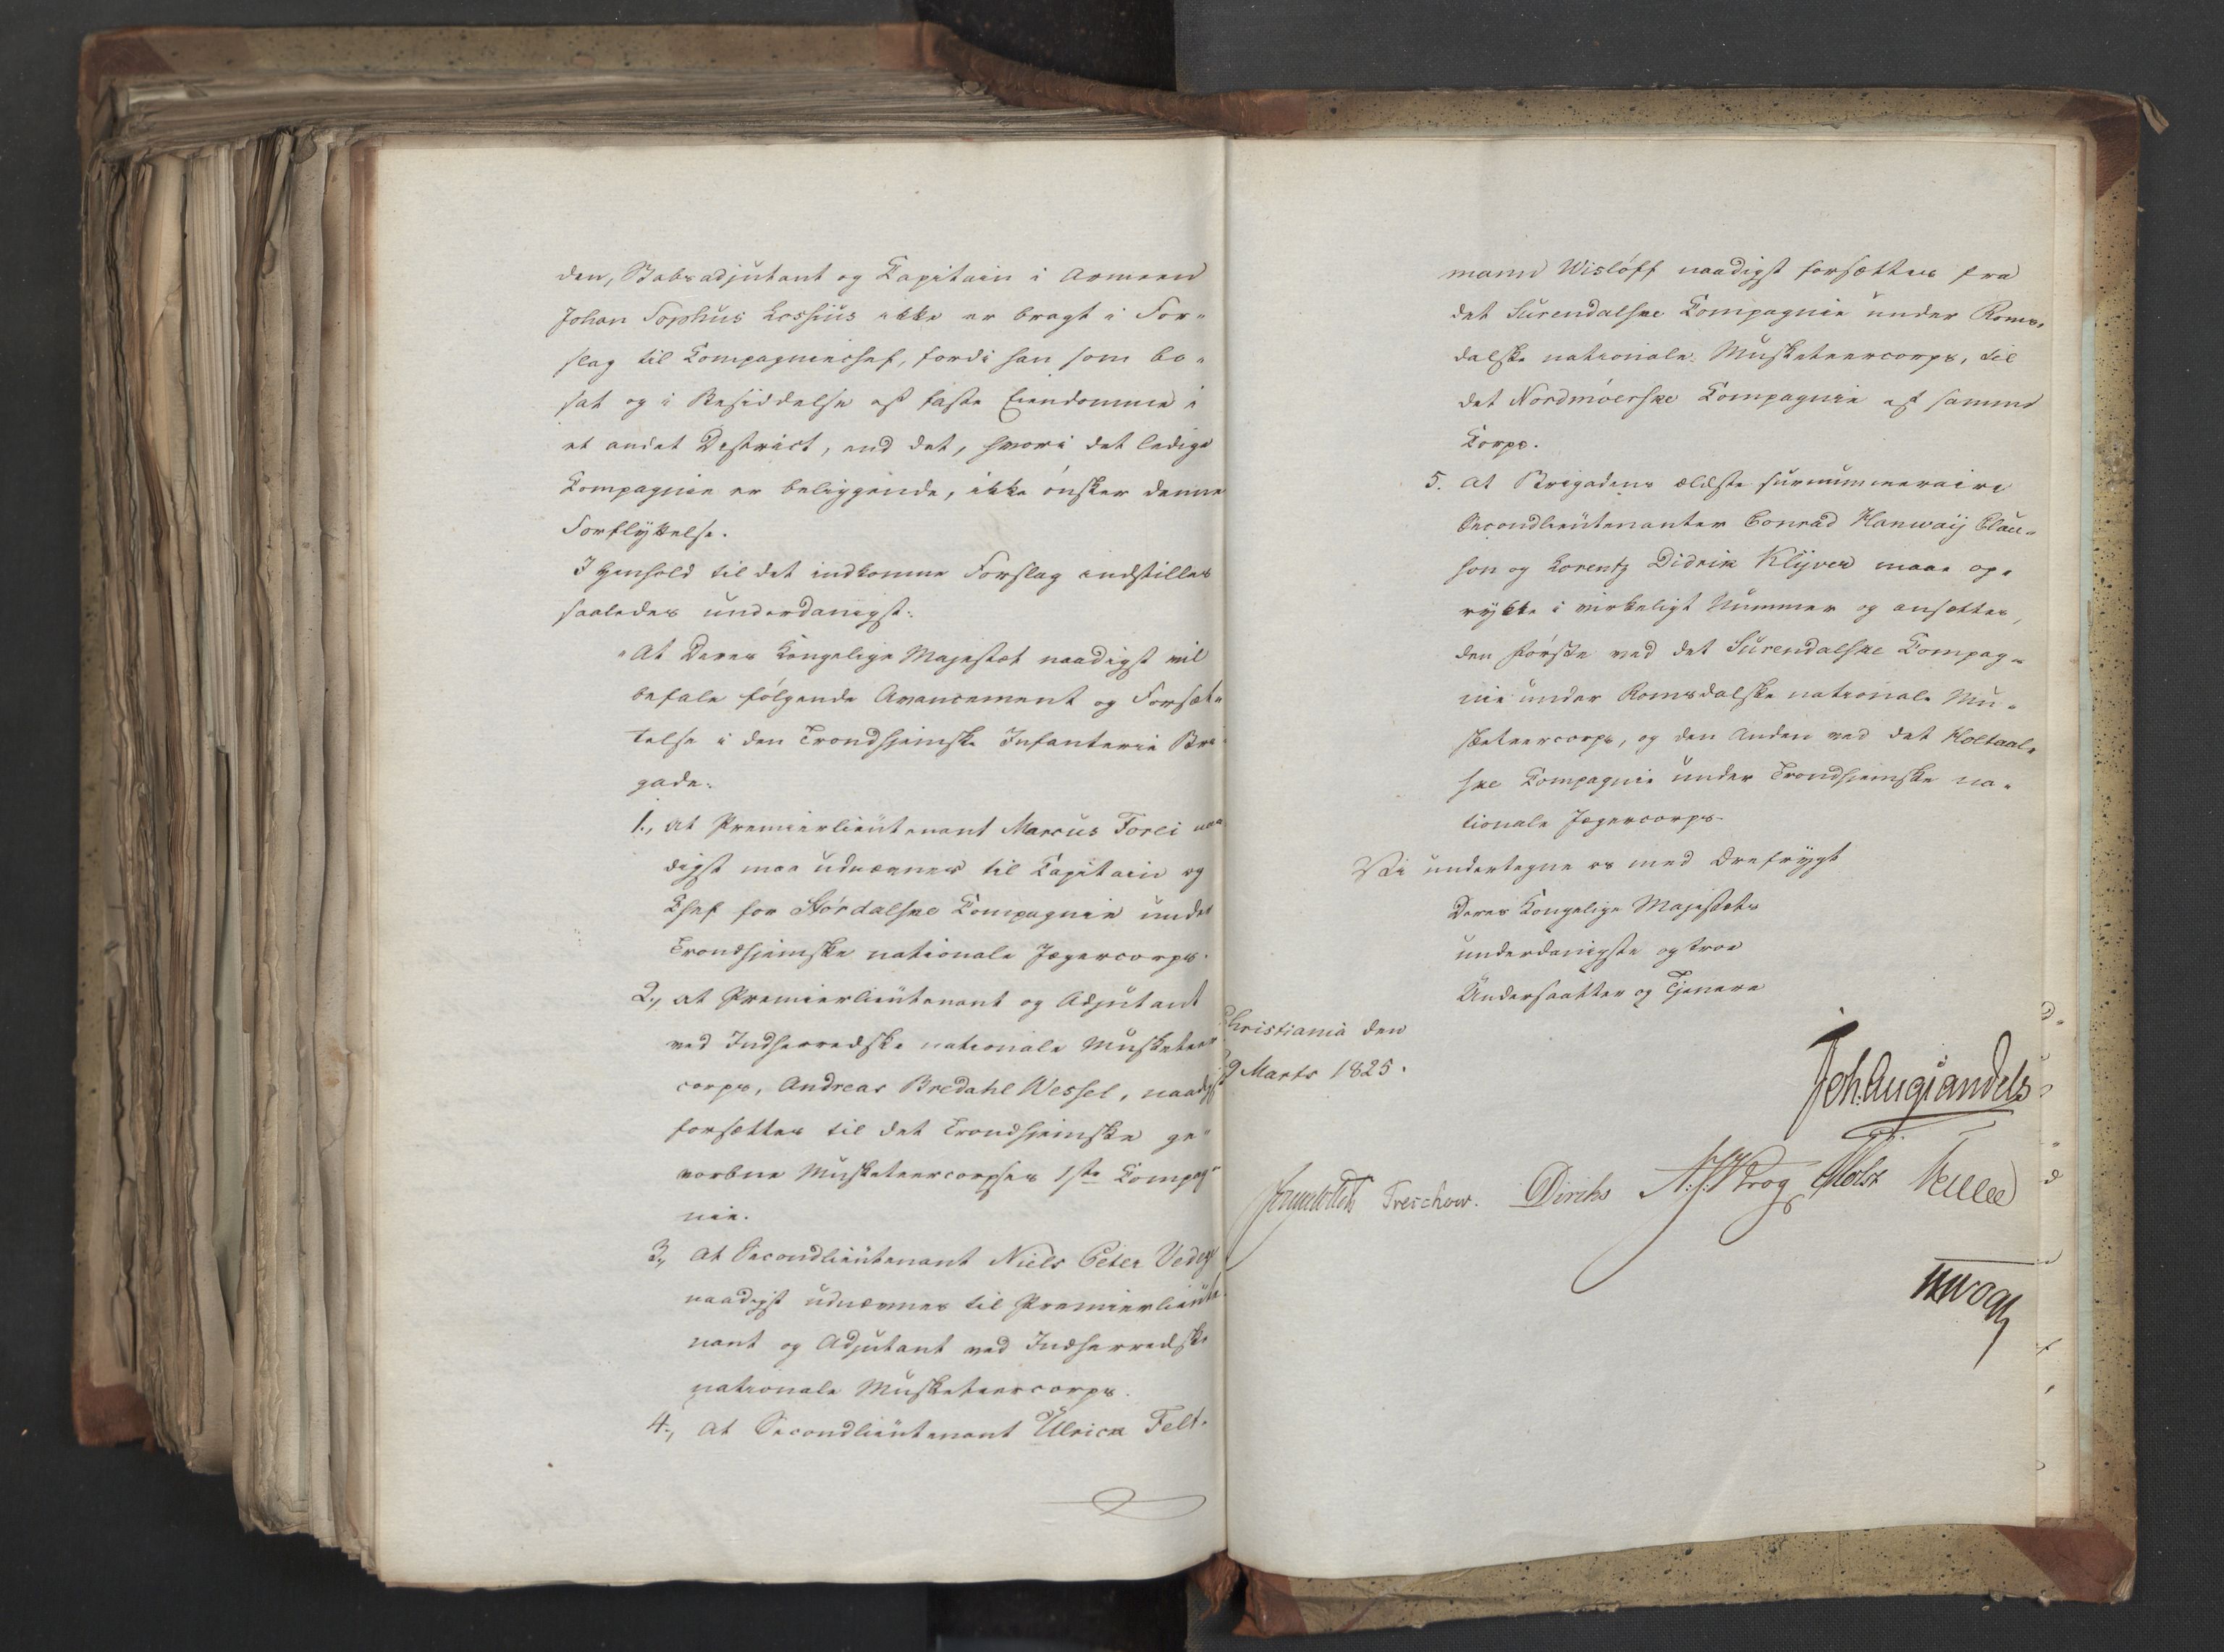 den, Stabsadjutant og Kapitain i Armeen
Johan Sophus Lossius ikke er bragt i For-
slag til Kompagniechef, fordi han som bo-
sat og i Besiddelse af faste Eiendomme i
et andet District, end det, hvori det ledige
Kompagnie er beliggende, ikke ønsker denne
Forflyttelse.
I Henhold til det indkomne Forslag indstilles
saaledes underdanigst:
"At Deres Kongelige Majestæt naadigst vil
befale følgende Avancement og Forsæt-
telse i den Trondhjemske Infanterie Bri-
gade:
1., at Premierlieutenant Marcus Forei naa-
digst maa udnævnes til Kapitain og
Chef for Størdalske Kompagnie under
Trondhjemske nationale Jægercorps.
2., at Premierlieutenant og Adjutant
ved Indherredske nationale Musketeer
corps, Andreas Bredahl Wessel, naadigst
forsættes til det Trondhjemske ge-
vorbne Musketeercorpses 1ste Kompag-
nie.
3., at Secondlieutenant Niels Peter
naadigst udnævnes til Premierlieute-
nant og Adjutant ved Indherredske
nationale Musketeercorps.
4., at Secondlieutenant Ulrick Felt-
mann Wisløff naadigst forsættes fra
det Surendalske Kompagnie under Roms-
dalske nationale Musketeercorps, til
det Nordmøerske Kompagnie af samme
Korps.
5. at Brigadens ældste surnummeraire
Secondlieutenanter Conrad Hanwaij Clau-
son og Lorentz Didrik Klyver maae op-
rykke i virkeligt Nummer og ansættes,
den første ved det Surendalske Kompag-
nie under Romsdalske nationale Mu-
sketeercorps, og den Anden ved det Holtaal-
ske Kompagnie under Trondhjemske na-
tionale Jægercorps.
Vi undertegne os med Ærefrygt
Deres Kongelige Majestæts
underdanigste og troe
Undersaatter og Tjenere
Christiania den
9 Marts 1825.
Joh. Aug. Sandels
Sommerfeldt Treschow. Diriks A. J. Krog Holst